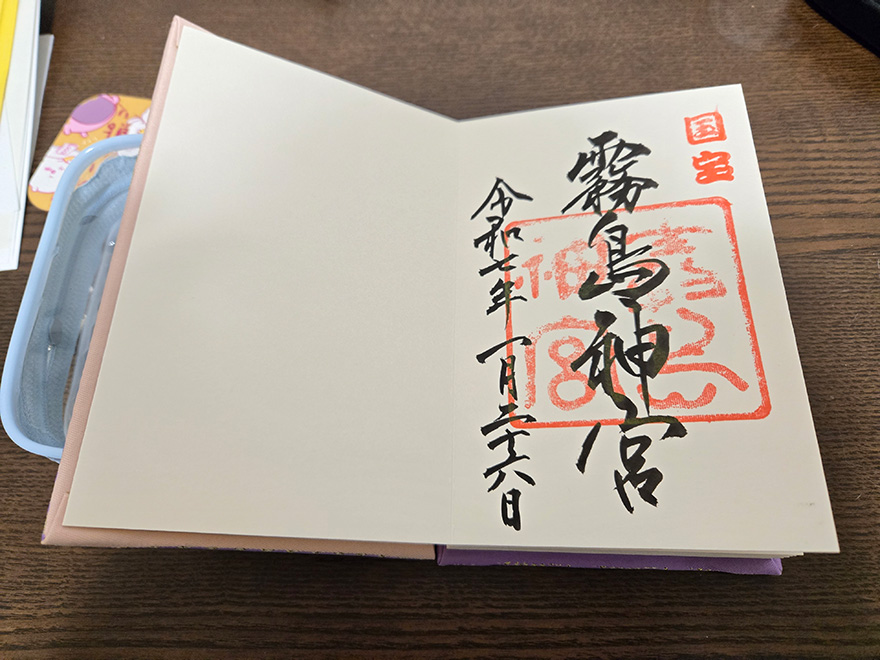 国宝
霧島神宮
霧島神宮
令和七年一月二十六日